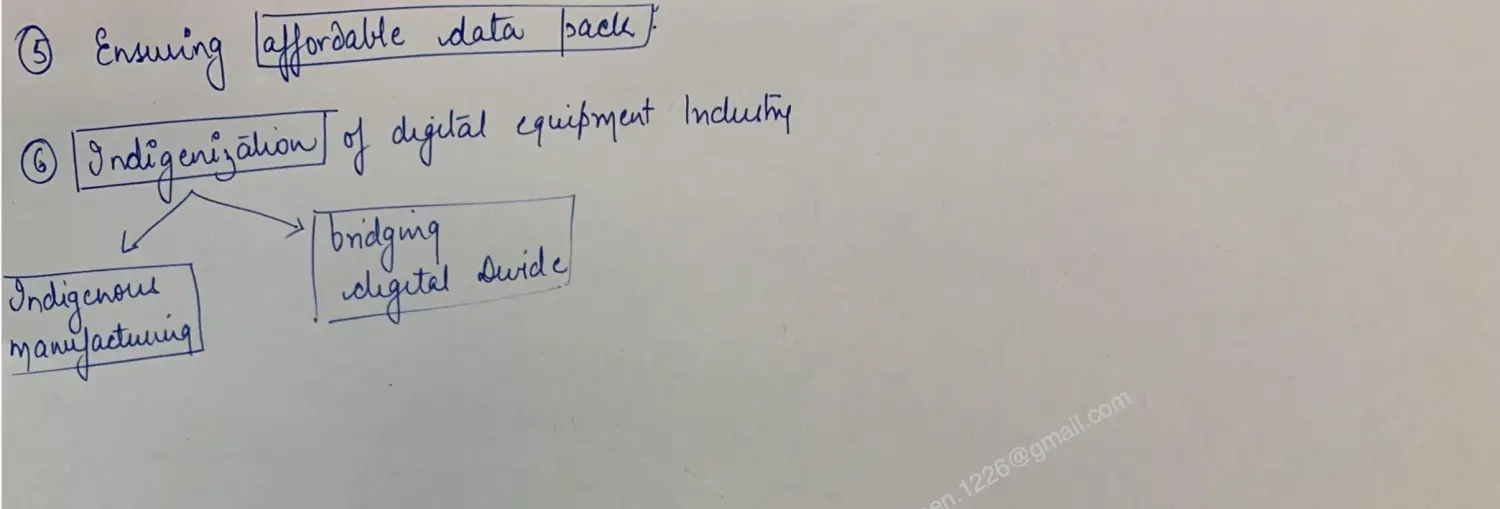 ⑤ Ensuring affordable data pack.
⑥ Indigenization of digital equipment Industry
bridging
digital Divide
Indigenous
manufacturing
en.1226@gmail.com